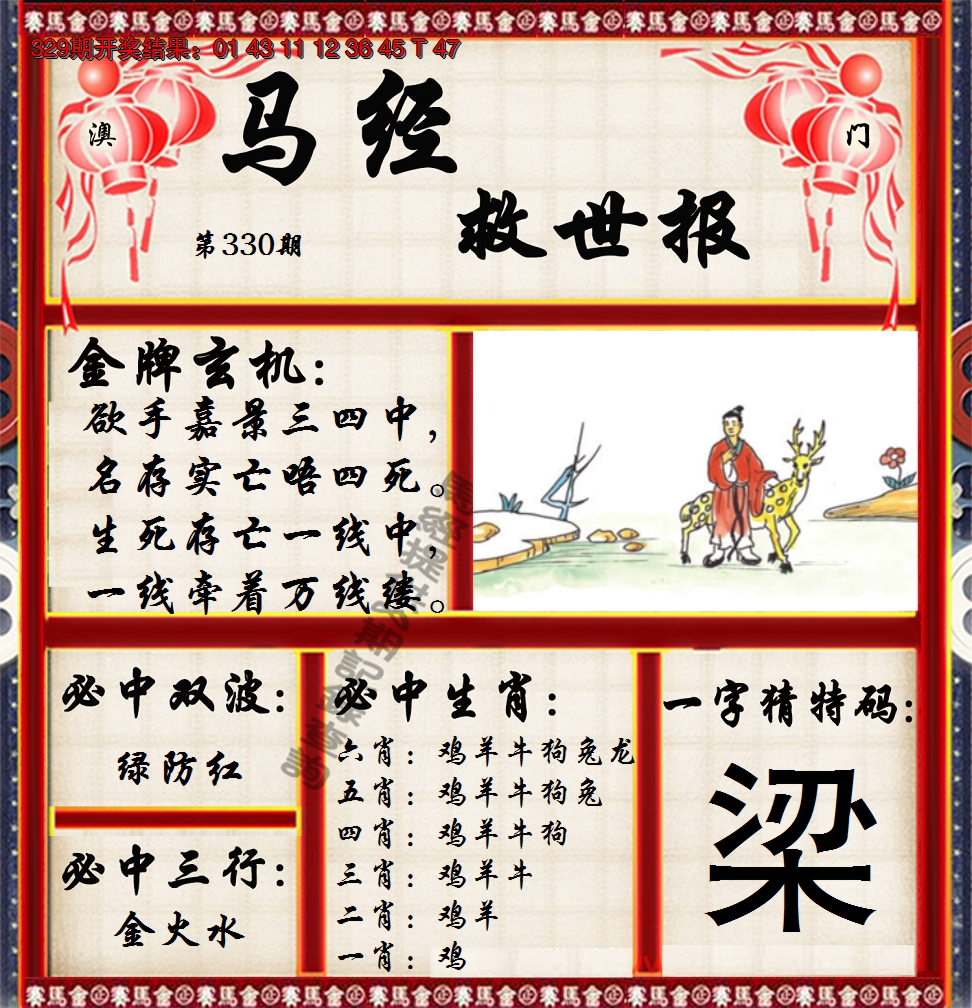 赛馬会 赛馬会 赛馬会 赛馬会 赛馬会 赛馬会 赛馬会
329期开奖结果：01 43 11 12 36 45 T 47
澳
门
马经
救世报
第330期
金牌玄机：
欲手嘉景三四中，
名存实亡唔四死。
生死存亡一线中，
一线牵着万线缕。
必中双波：
绿防红
必中三行：
金火水
必中生肖：
六肖：鸡羊牛狗兔龙
五肖：鸡羊牛狗兔
四肖：鸡羊牛狗
三肖：鸡羊牛
二肖：鸡羊
一肖：鸡
一字猜特码：
梁